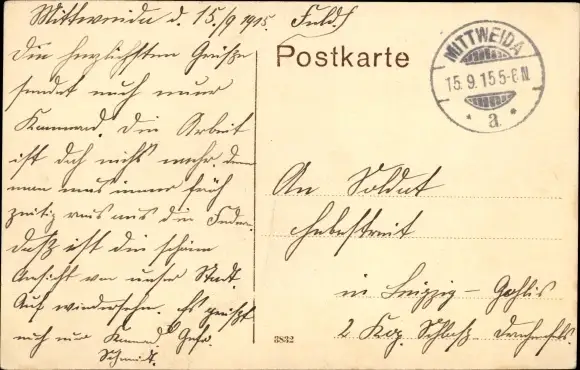 Mittweida d. 15./9 1915. Feldp.
Die herzlichsten Grüße
sendet euch euer
Kammerad. Die Arbeit
ist doch nicht mehr. denn
man muß immer früh
zeitig raus aus die Feder.
Daß ist die schöne
Ansicht von unser Stadt.
Auf wiedersehn. Es grüßt
euch euer Kamrad. Gefr.
Schmidt.
Postkarte
MITTWEIDA
15.9.15.5-6 N.
* a *
An Soldat
Hebestreit
in Leipzig – Gohlis
2. Kop. Schloß
3832